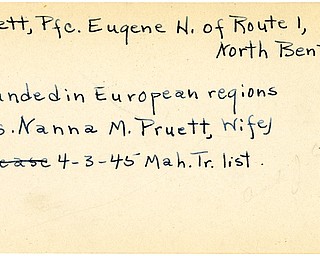 ett, Pfc. Eugene H. of Route 1,
North Ben
unded in European regions
s. Nanna M. Pruett, Wife,
ease 4-3-45 Mah. Tr. list.